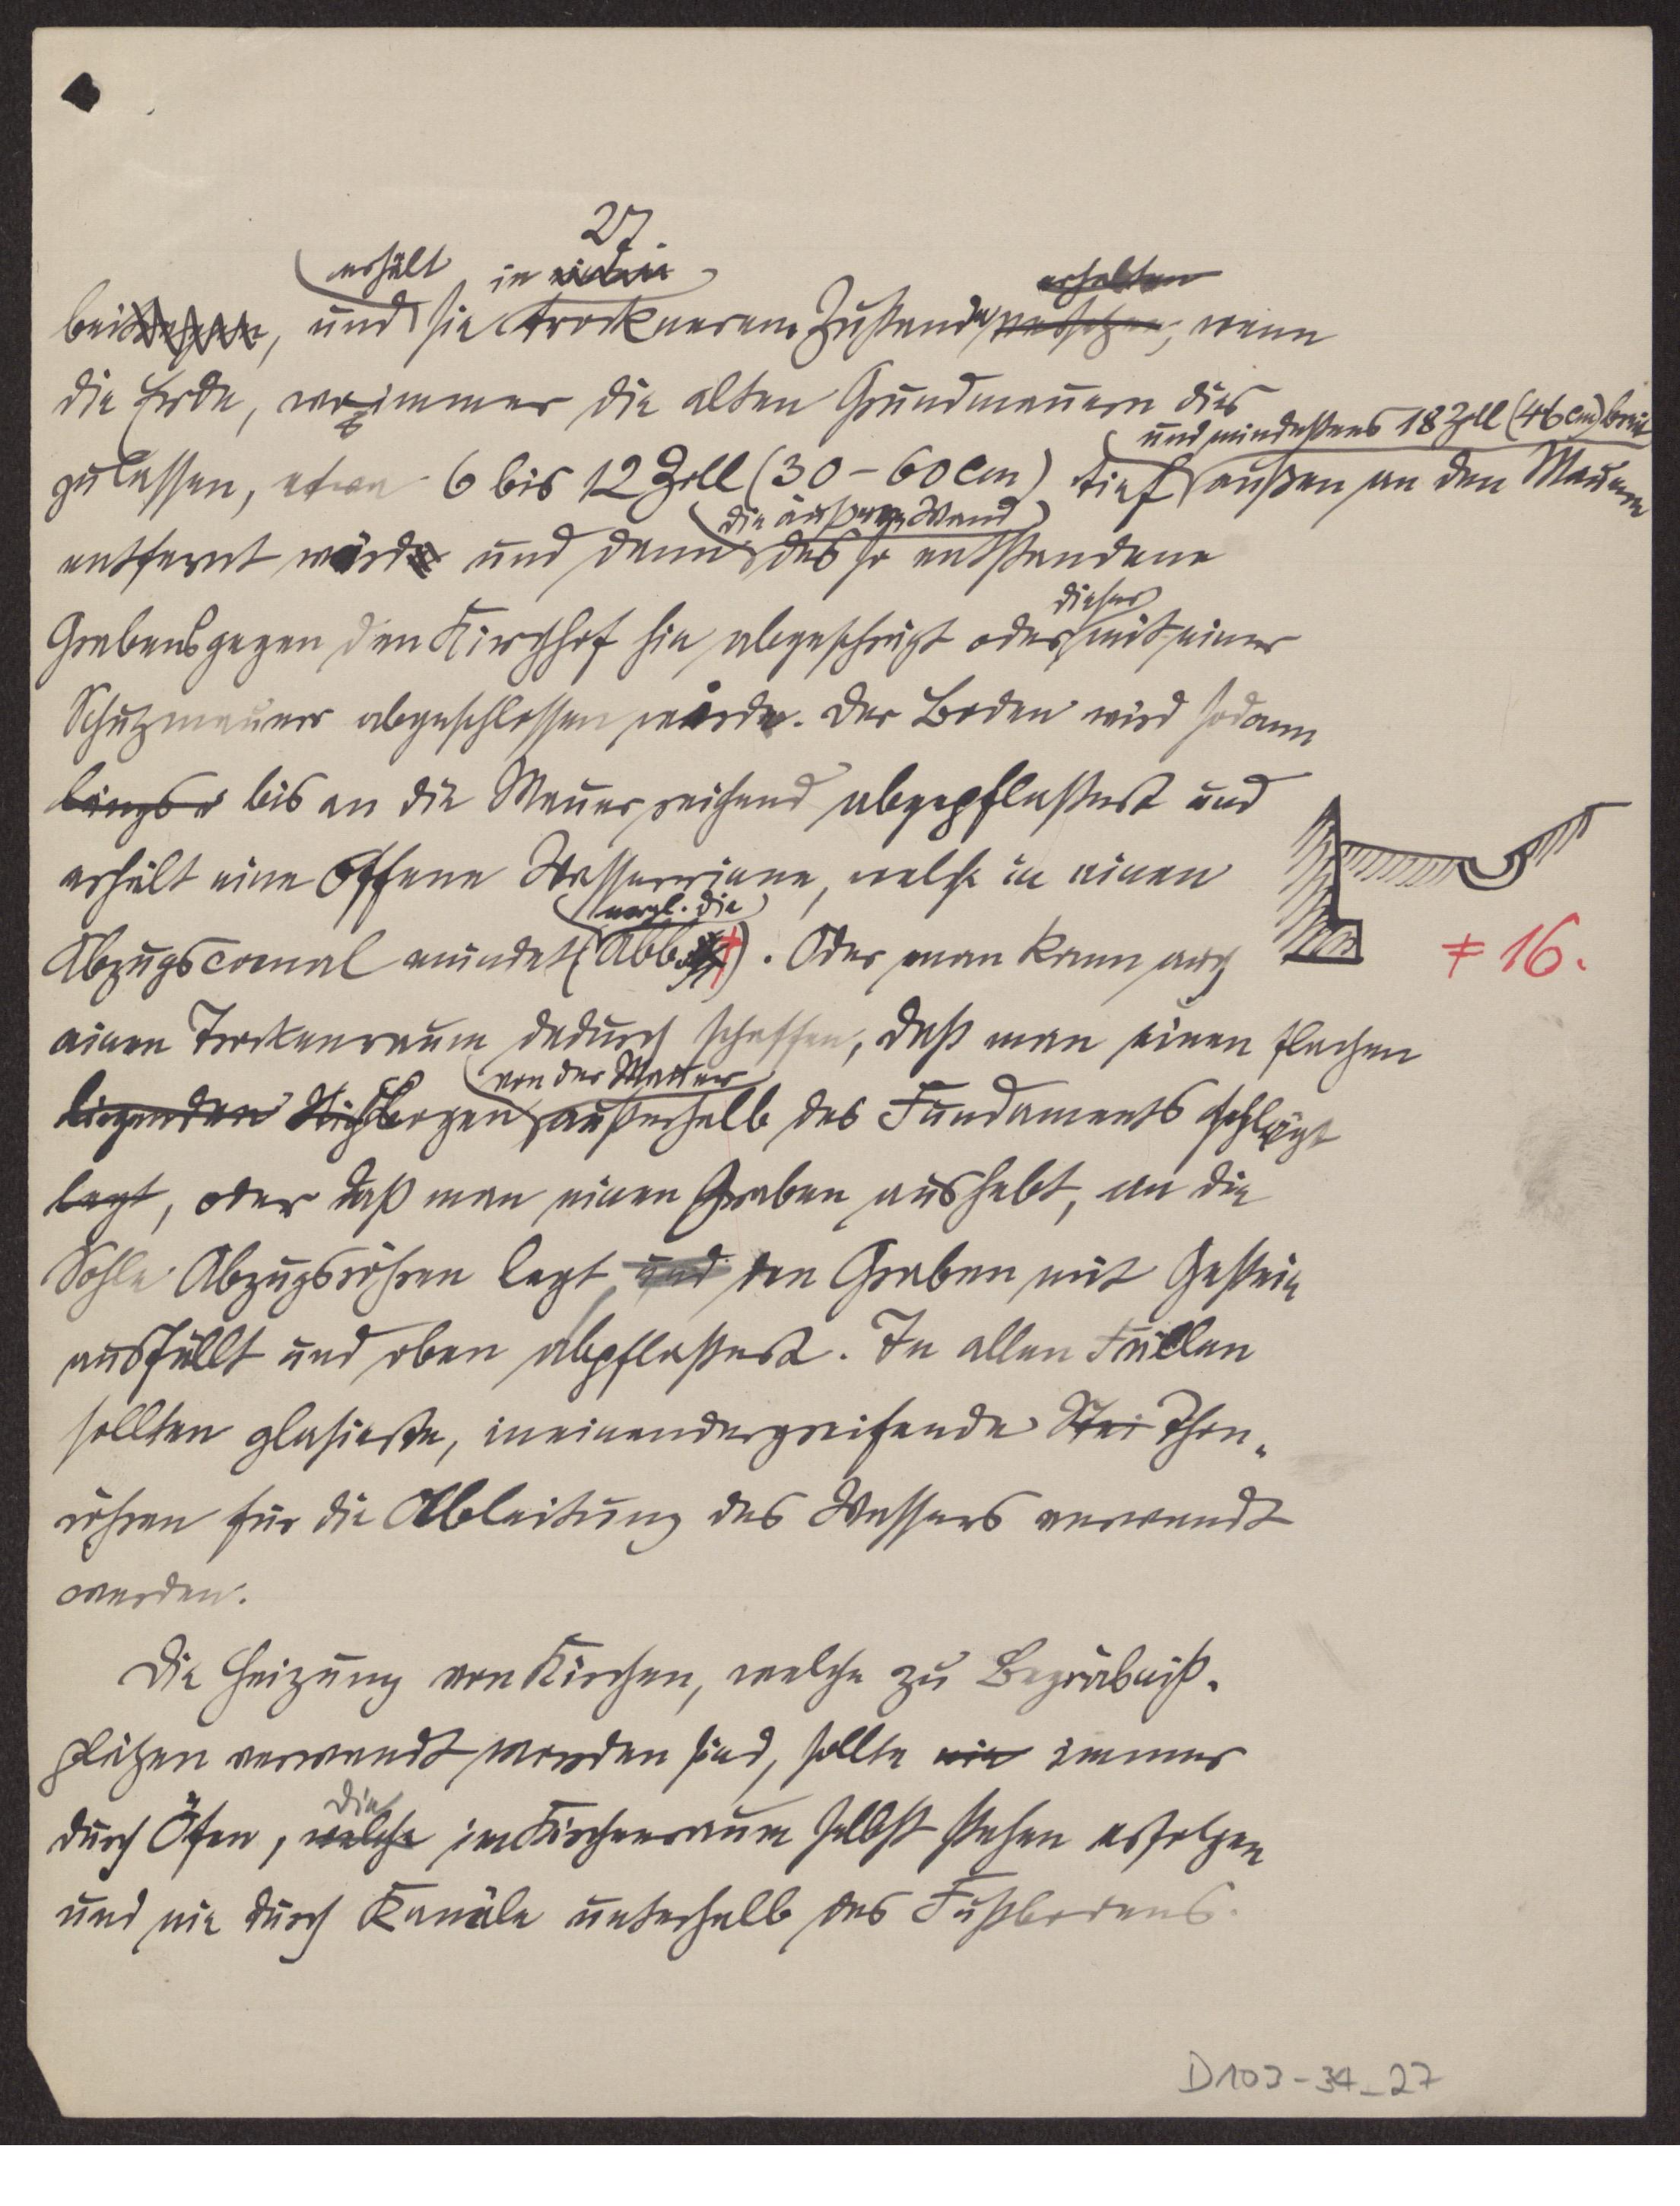 27
erhält in erhalten
bei, und sie trocknerem Zustande versetzen, wenn
die Erde, wo immer die alten Grundmauern dies
und mindestens 18 Zoll (46 cm) breit
zulassen, etwa 6 bis 12 Zoll (30-60 cm) tief außen an den Mauern
die äußere Wand
entfernt würde und dann des so entstandene
dieser
Grabens gegen den Kirchhof hin abgeschrägt oder mit einer
Schutzmauer abgeschlossen würde. Der Boden wird sodann
längs d bis an die Mauer reichend abgepflastert und
erhält eine offene Wasserrinne, welche in einen
vergl. die
Abzugscanal mündet (Abb. ‡). Oder man kann auch
‡ 16.
einen Trockenraum dadurch schaffen, daß man einen flachen
von der Mauer
liegenden Stichbogen außerhalb des Fundaments schlägt
legt, oder daß man einen Graben aushebt, an die
Sohle Abzugsröhren legt, und den Graben mit Gestein
ausfüllt und oben abpflastert. In allen Fällen
sollten glasierte, ineinandergreifende Stei Thon-
röhren für die Ableitung des Wassers verwandt
werden.
Die Heizung von Kirchen, welche zu Begräbniß-
plätzen verwandt worden sind, sollte nie immer
die
durch Öfen, welche im Kirchenraum selbst stehen erfolgen
und nie durch Kanäle unterhalb des Fußbodens.
D103-34_27